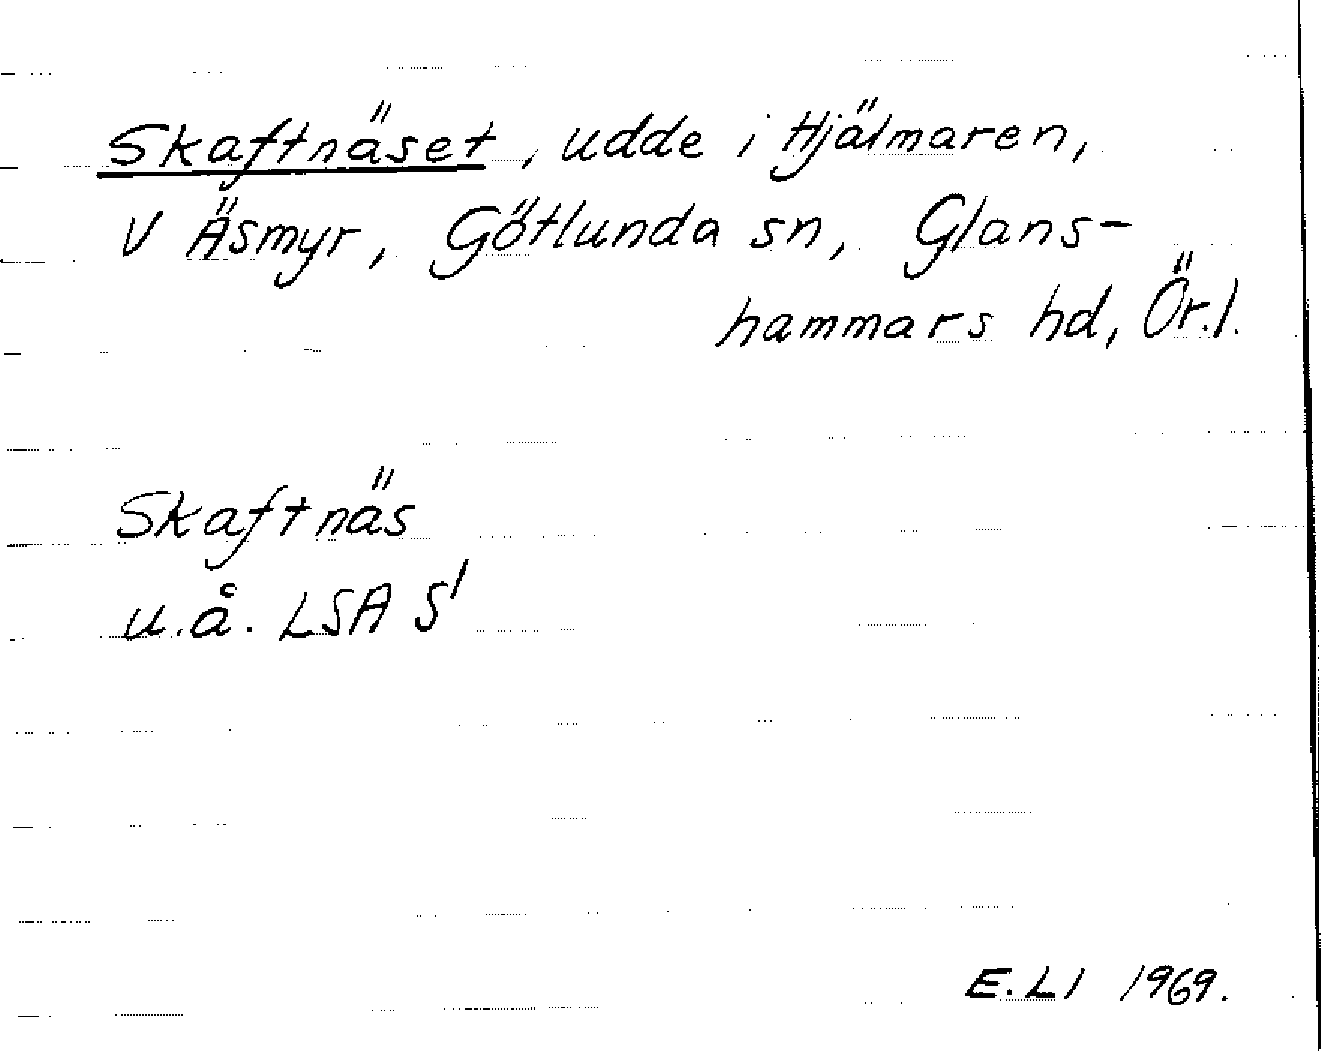 Skaftnäset, udde i Hjälmaren,
V Äsmyr, Götlunda sn, Glans-
hammars hd, Ör.l.
Skaftnäs
u.å. LSA S¹
E.Ll 1969.